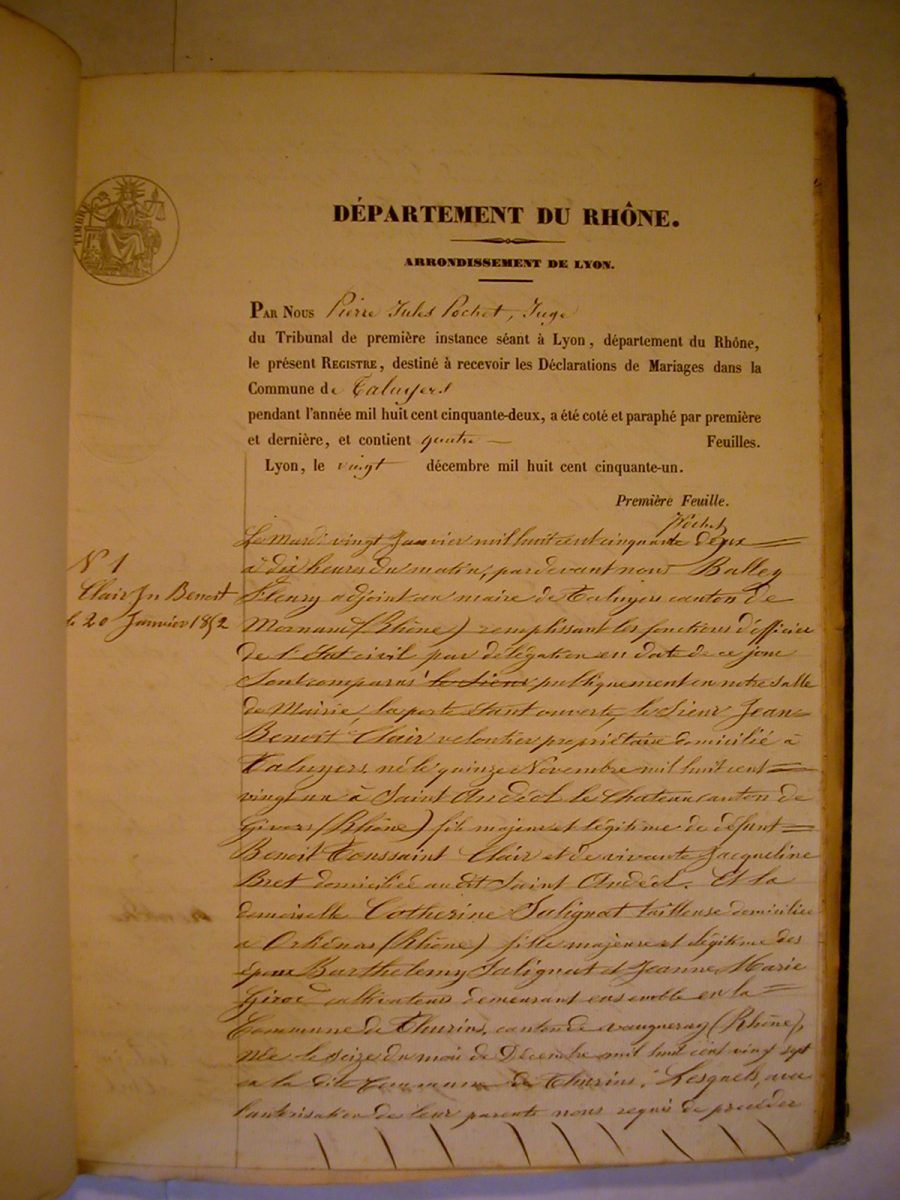 TIMBRE
DÉPARTEMENT DU RHÔNE.
ARRONDISSEMENT DE LYON.
PAR NOUS Pierre Jules Pochet, Juge
du Tribunal de première instance séant à Lyon, département du Rhône,
le présent REGISTRE, destiné à recevoir les Déclarations de Mariages dans la
Commune de Taluyers
pendant l'année mil huit cent cinquante-deux, a été coté et paraphé par première
et dernière, et contient quatre — Feuilles.
Lyon, le vingt décembre mil huit cent cinquante-un.
Première Feuille.
Pochet
N° 1
Clair Jn Benoit
le 20 Janvier 1852
Le mardi vingt Janvier mil huit cent cinquante deux
à dix heures du matin, pardevant nous Balley
Fleury adjoint au maire de Taluyers canton de
Mornant (Rhône) remplissant les fonctions d'officier
de l'état civil par délégation en date de ce jour
Sont comparus le Sieur publiquement en notre salle
de Mairie, la porte étant ouverte, le Sieur Jean
Benoit Clair veloutier propriétaire domicilié à
Taluyers né le quinze Novembre mil huit cent
vingt un à Saint Andéol le Chateau canton de
Givors (Rhône) fils majeur et légitime de défunt
Benoit Toussaint Clair et de vivante Jacqueline
Bret domiciliée au dit Saint Andéol. Et la
demoiselle Catherine Salignat tailleuse domiciliée
à Orliénas (Rhône) fille majeure et légitime des
époux Barthelemy Salignat et Jeanne Marie
Girod cultivateurs demeurant ensemble en la
Commune de Thurins, canton de vaugneray (Rhône),
née le seize du mois de Décembre mil huit cent vingt sept
en la dite commune de Thurins. Lesquels, avec
l'autorisation de leur parents nous requis de procéder